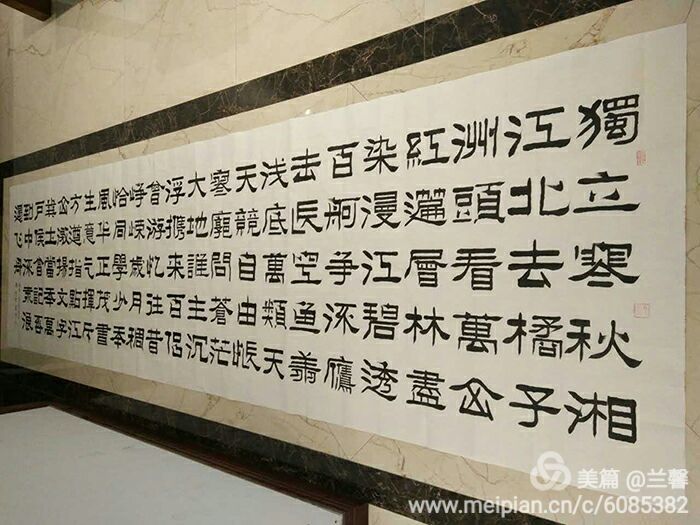 獨立寒秋湘
江北去橘子
洲頭看萬山
紅遍層林盡
染漫江碧透
百舸争流鷹
去長空鱼翔
浅底萬類天
天競自由悵
寥廓問蒼茫
大地誰主沉
浮攜來百侣
曾游憶往昔
崢嶸歲月稠
恰同學少年
風华正茂書
生意气揮斥
方遒指點江
山激揚文字
糞土當年萬
户侯曾記否
到中流擊水浪
遏飛舟
美篇 @兰馨
www.meipian.cn/c/6085382